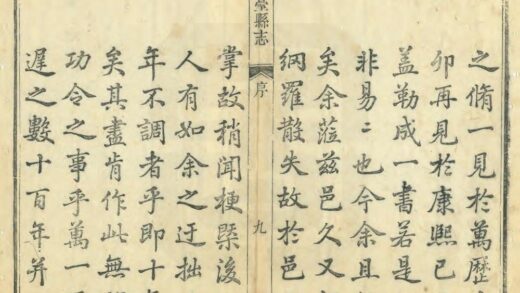 之脩一見於萬歷
卯再見於康熙己
蓋勒成一書若是
非易〻也今余且
矣余蒞茲邑久又
網羅散失故於邑
堂縣志
序
九
掌故稍聞梗槩後
人有如余之迂拙
年不調者乎即十
矣其盡肯作此無
功令之事乎萬一
遲之數十百年幷